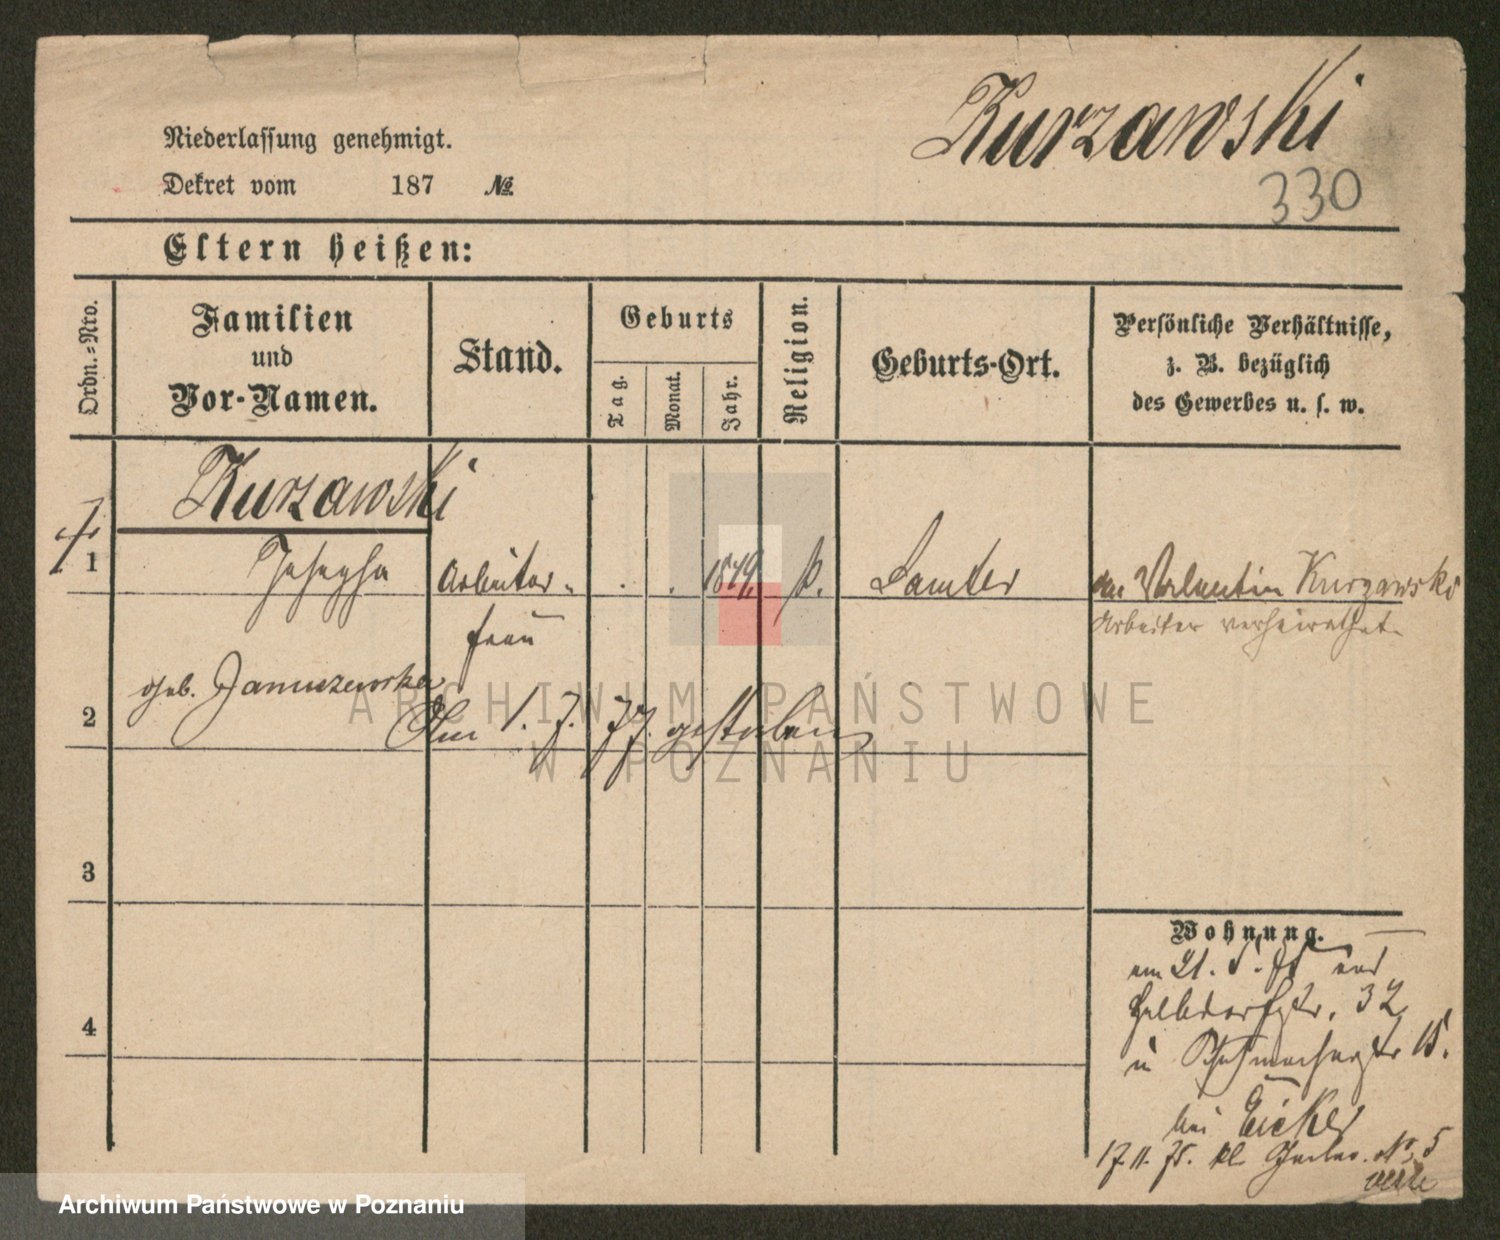 Kurzawski
330
Niederlassung genehmigt.
Dekret vom 187 №
Eltern heißen:
Ordn.-Nro.
Familien
und
Vor-Namen.
Stand.
Geburts
Tag.
Monat.
Jahr.
Religion.
Geburts-Ort.
Persönliche Verhältnisse,
z. B. bezüglich
des Gewerbes u. s. w.
Kurzawski
1 Josepha Arbeiter- . . 18 k. Samter an Valentin Kurzawski
frau Arbeiter verheirathet
2 geb. Januszewska
Am 1. 7. 77. gestorben
3
4
Wohnung.
am 21. 5. von
Halbdorfstr. 32
u Schuhmacherstr 15.
bei Eicker
17. 11. 75. kl. No. 5
ARCHIWUM PAŃSTWOWE
W POZNANIU
Archiwum Państwowe w Poznaniu